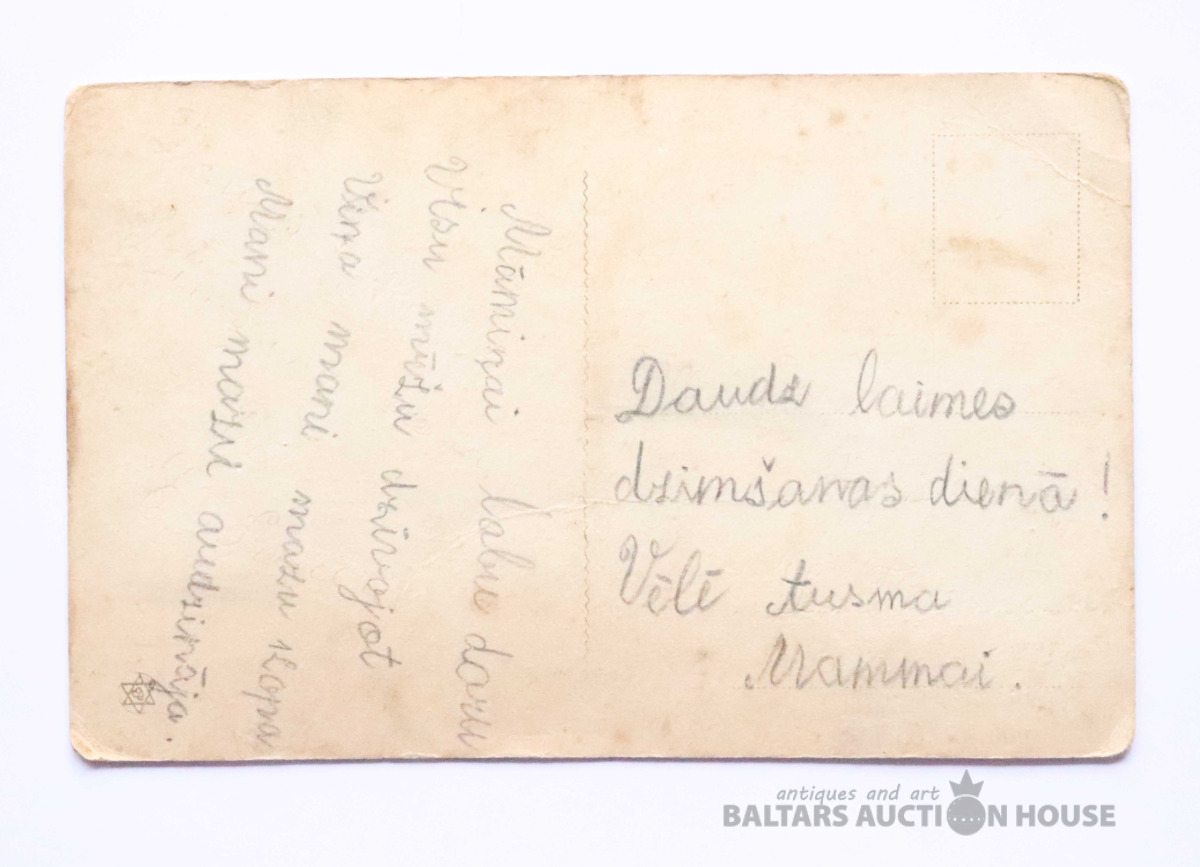 Māmiņai labu daru
Visu mūžu dzīvojot
Viņa mani mazu kopa
Mani mazu audzināja.
Daudz laimes
dzimšanas dienā!
Vēlē Ausma
Mammai.
antiques and art
BALTARS AUCTION HOUSE